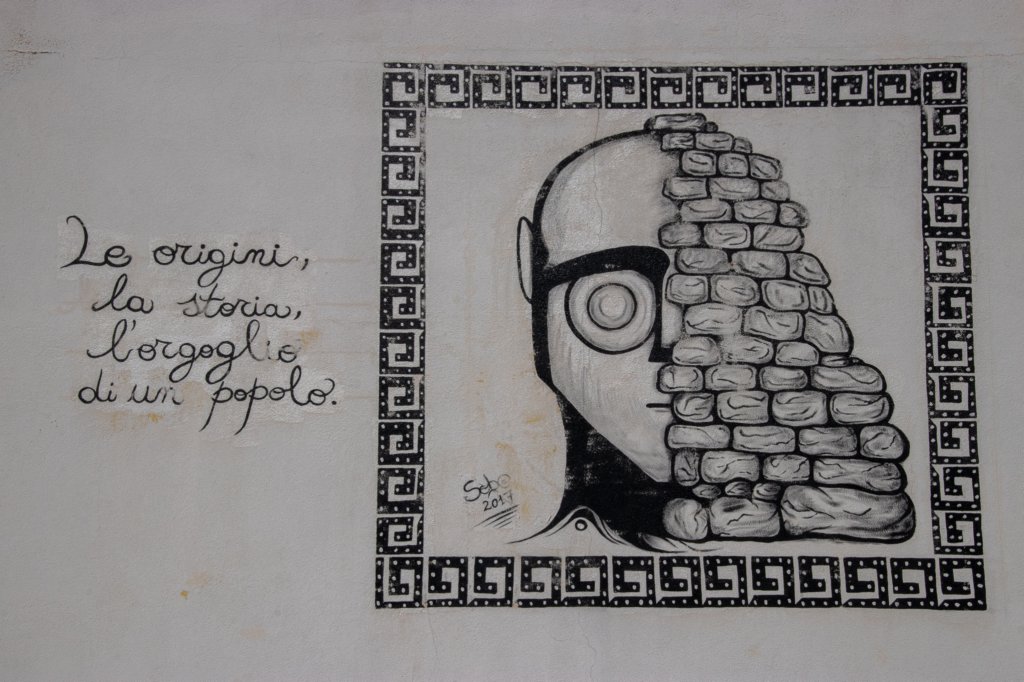 Le origini,
la storia,
l'orgoglio
di un popolo.
Sebo
2017